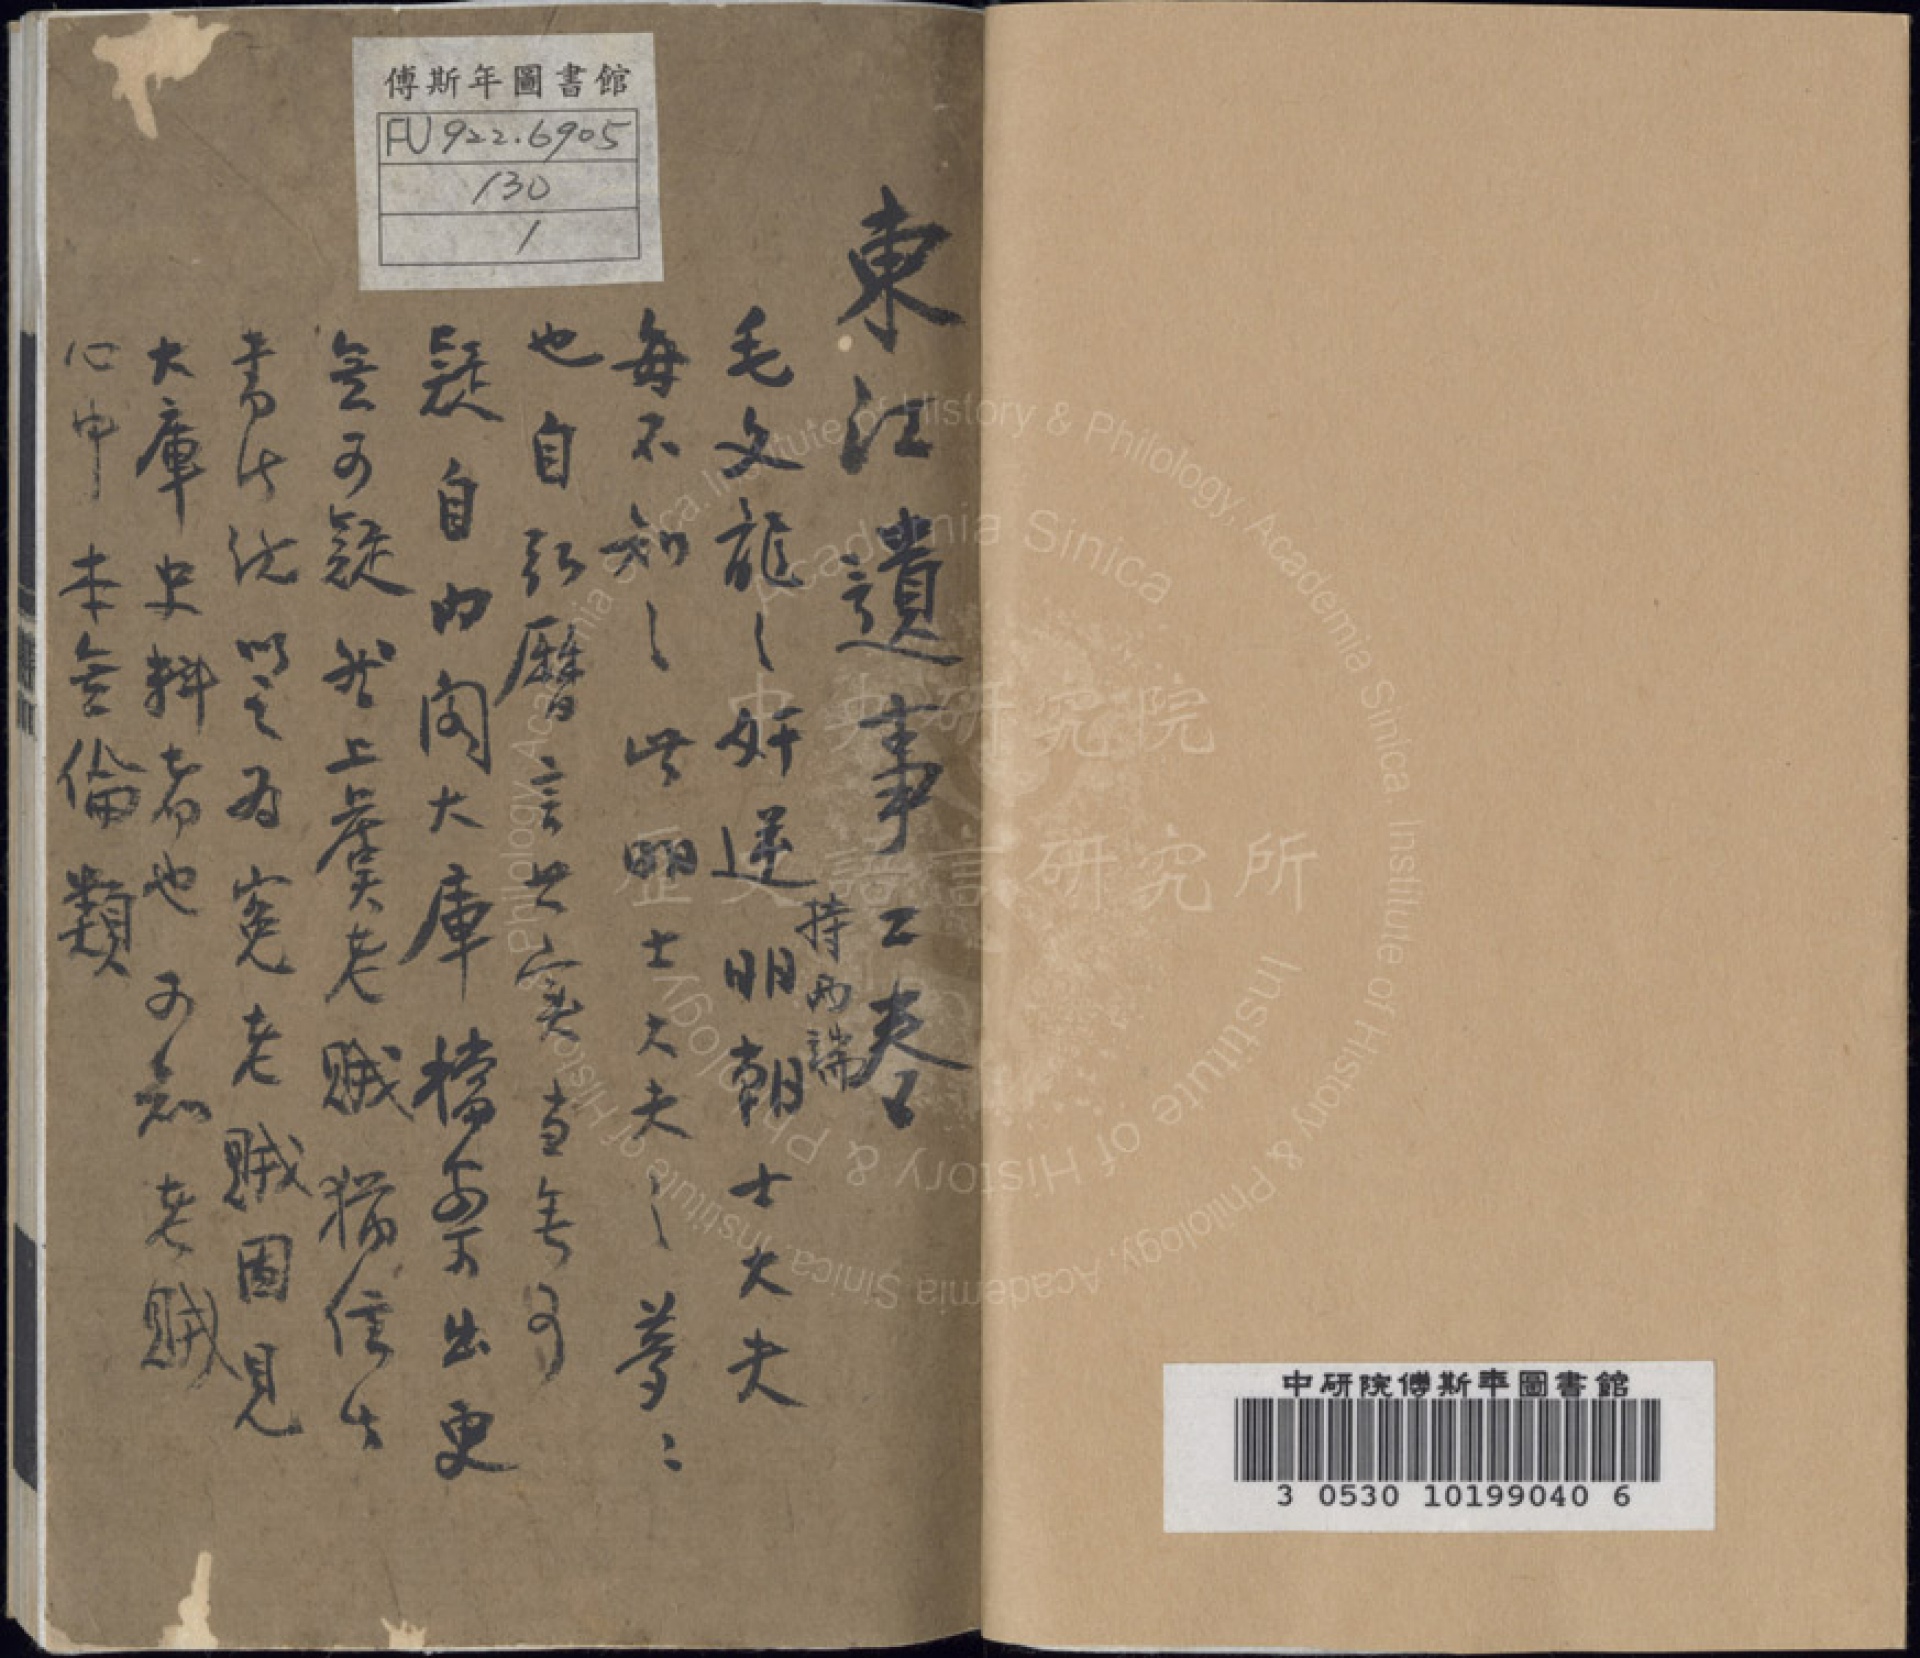 傅斯年圖書館
FU922.6905
130
1
東江遺事二卷
毛文龍之奸逆持兩端明朝士大夫
每不知之此明士大夫之夢夢
也自弘曆言其实当無可
疑自内阁大庫檔案出更
無可疑然上虞老賊猶信此
書此說以之為寃老賊固見
大庫史料者也可知老賊
心中本無倫類
中央研究院
歷史語言研究所
Academia Sinica
Institute of History & Philology, Academia Sinica
中研院傅斯年圖書館
3 0530 10199040 6